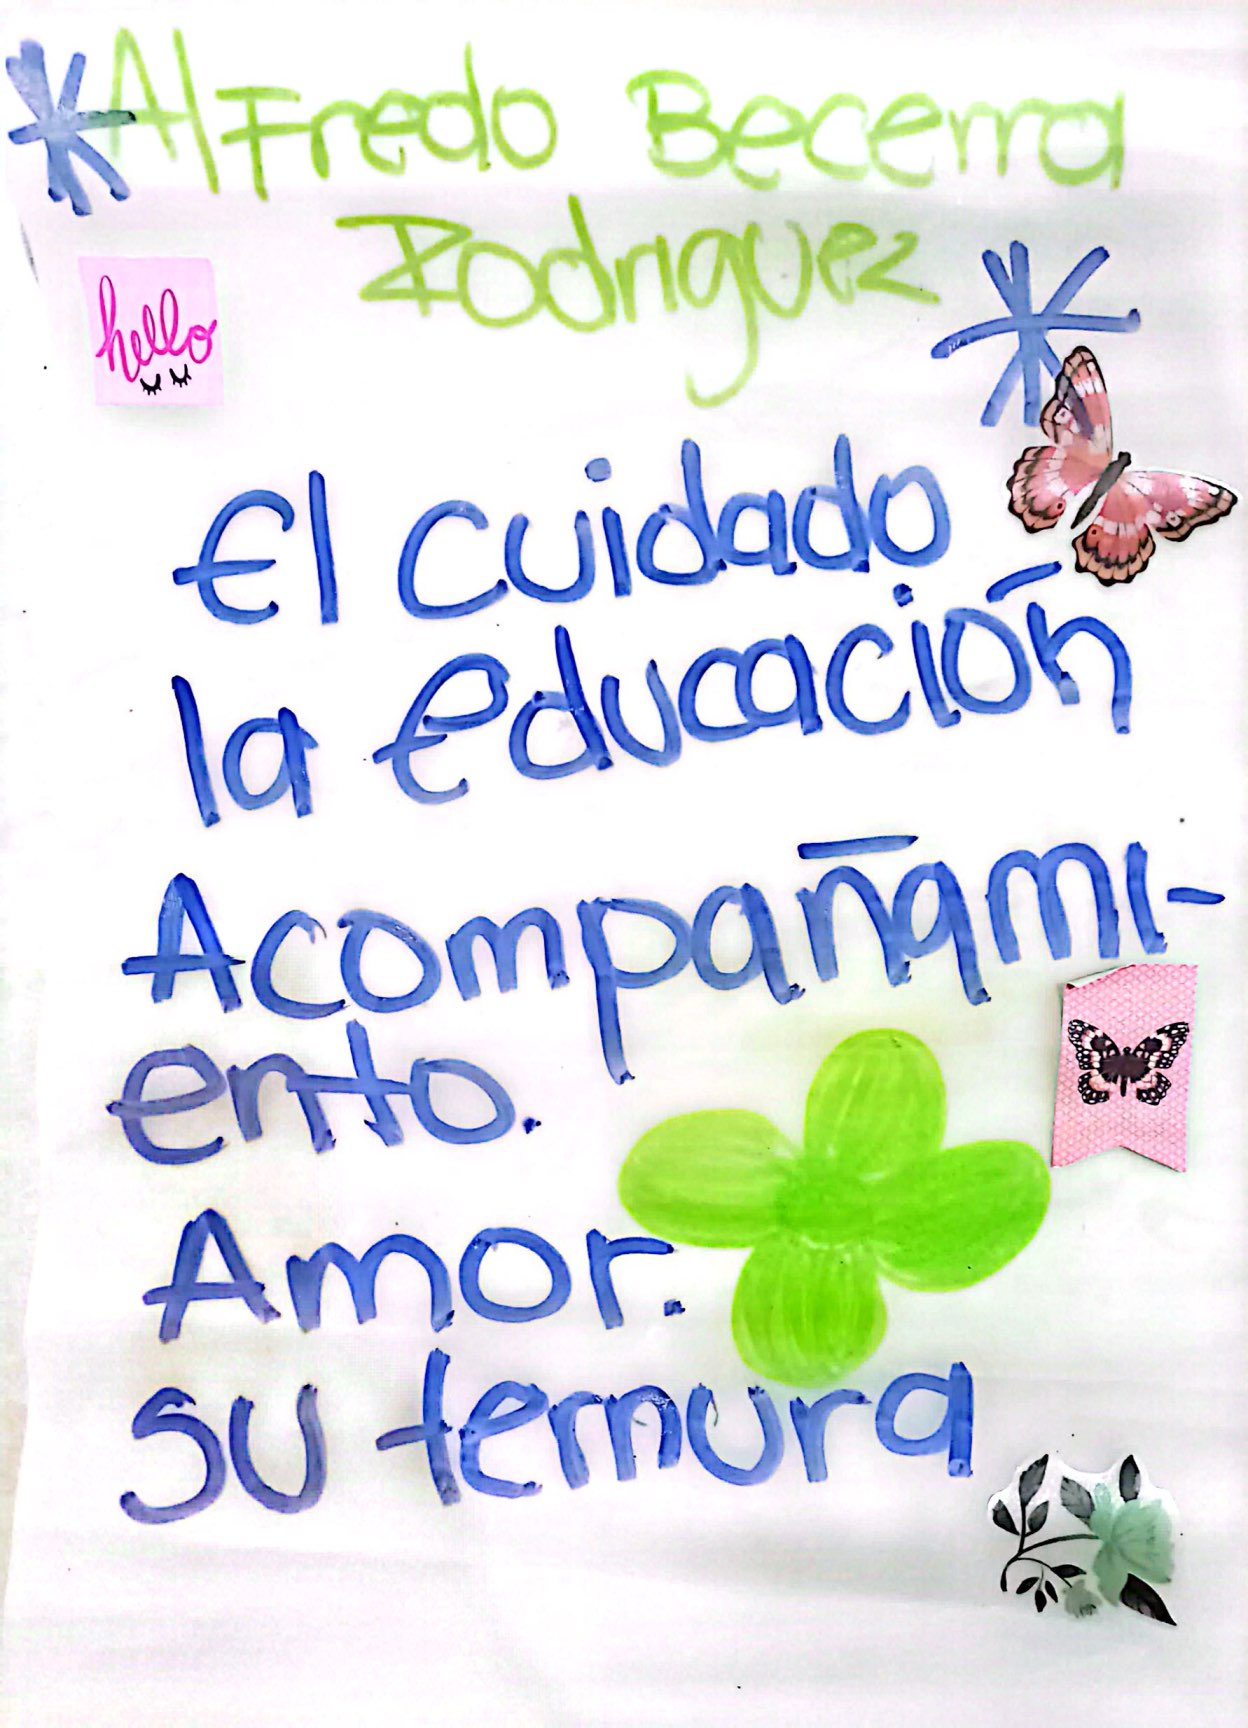 AlFredo Becerra
Rodriguez
hello
El cuidado
la educación
Acompañami-
ento.
Amor.
su ternura